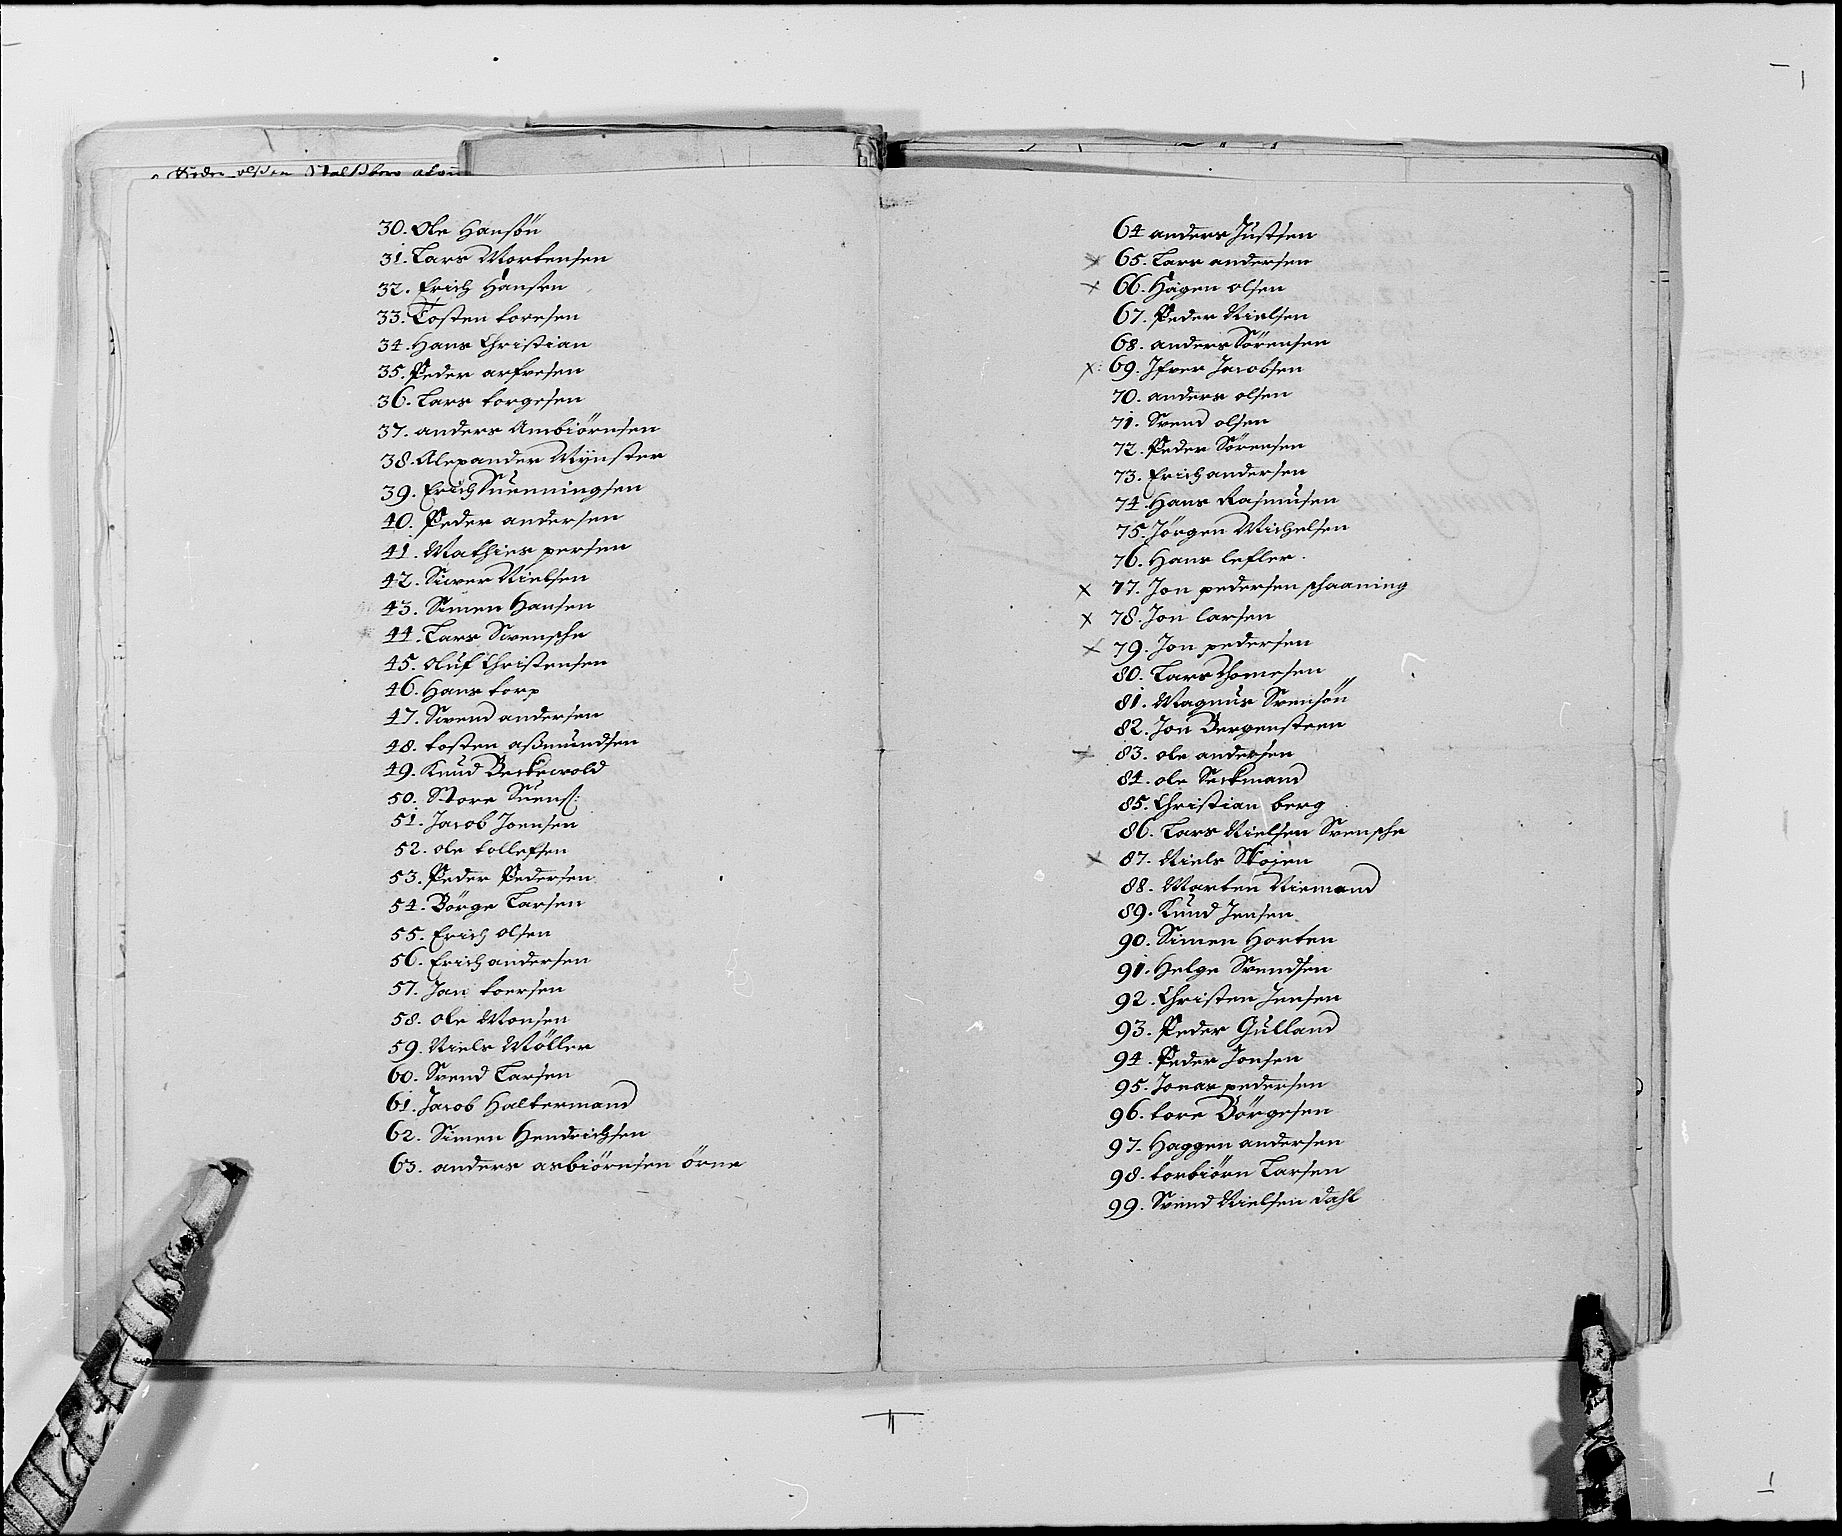 30. Ole Hansön
31. Lars Mortensen
32. Erich Hansen
33. Tosten toresen
34. Hans Christian
35. Peder arfvesen
36. Lars torgesen
37. anders Ambiörnsen
38. Alexander Mÿnster
39. Erich Suenningsen
40. Peder andersen
41. Mathies persen
42. Siver Nielsen
43. Simen Hansen
44. Lars Svensche
45. Oluf Christensen
46. Hans torp
47. Svend andersen
48. tosten aßmundsen
49. Knud Beckevold
50. Store Suens:
51. Jacob Joensen
52. ole tollefsen
53. Peder Pedersen
54. Börge Larsen
55. Erich olsen
56. Erich andersen
57. Jan toersen
58. ole Monsen
59. Niels Möller
60. Svend Larsen
61. Jacob Haltermand
62. Simen Hendrichsen
63. anders asbiörnsen örne
64 anders Justsen
x 65. Lars andersen
x 66. Hagen olsen
67. Peder Nielsen
68. anders Sörensen
x 69. Ifver Jacobsen
70. anders olsen
71. Svend olsen
72. Peder Sörensen
73. Erich andersen
74. Hans Rasmusen
75. Jörgen Michelsen
76. Hans lefler.
x 77. Jon pedersen schaaning
x 78. Jon larsen
x 79. Jon pedersen
80. Lars Thomesen
81. Magnus Svensön
82. Jon Bergensteen
x 83. ole andersen
84. ole Seckmand
85. Christian berg
86. Lars Nielsen Svensche
x 87. Niels Stöien
88. Morten Niemand
89. Knud Jensen
90. Simen Horten
91. Helge Svendsen
92. Christen Jensen
93. Peder Gulland
94. Peder Jonsen
95. Jonas pedersen
96. tore Börgesen
97. Haggen andersen
98. torbiörn Larsen
99. Svend Nielsen dahl